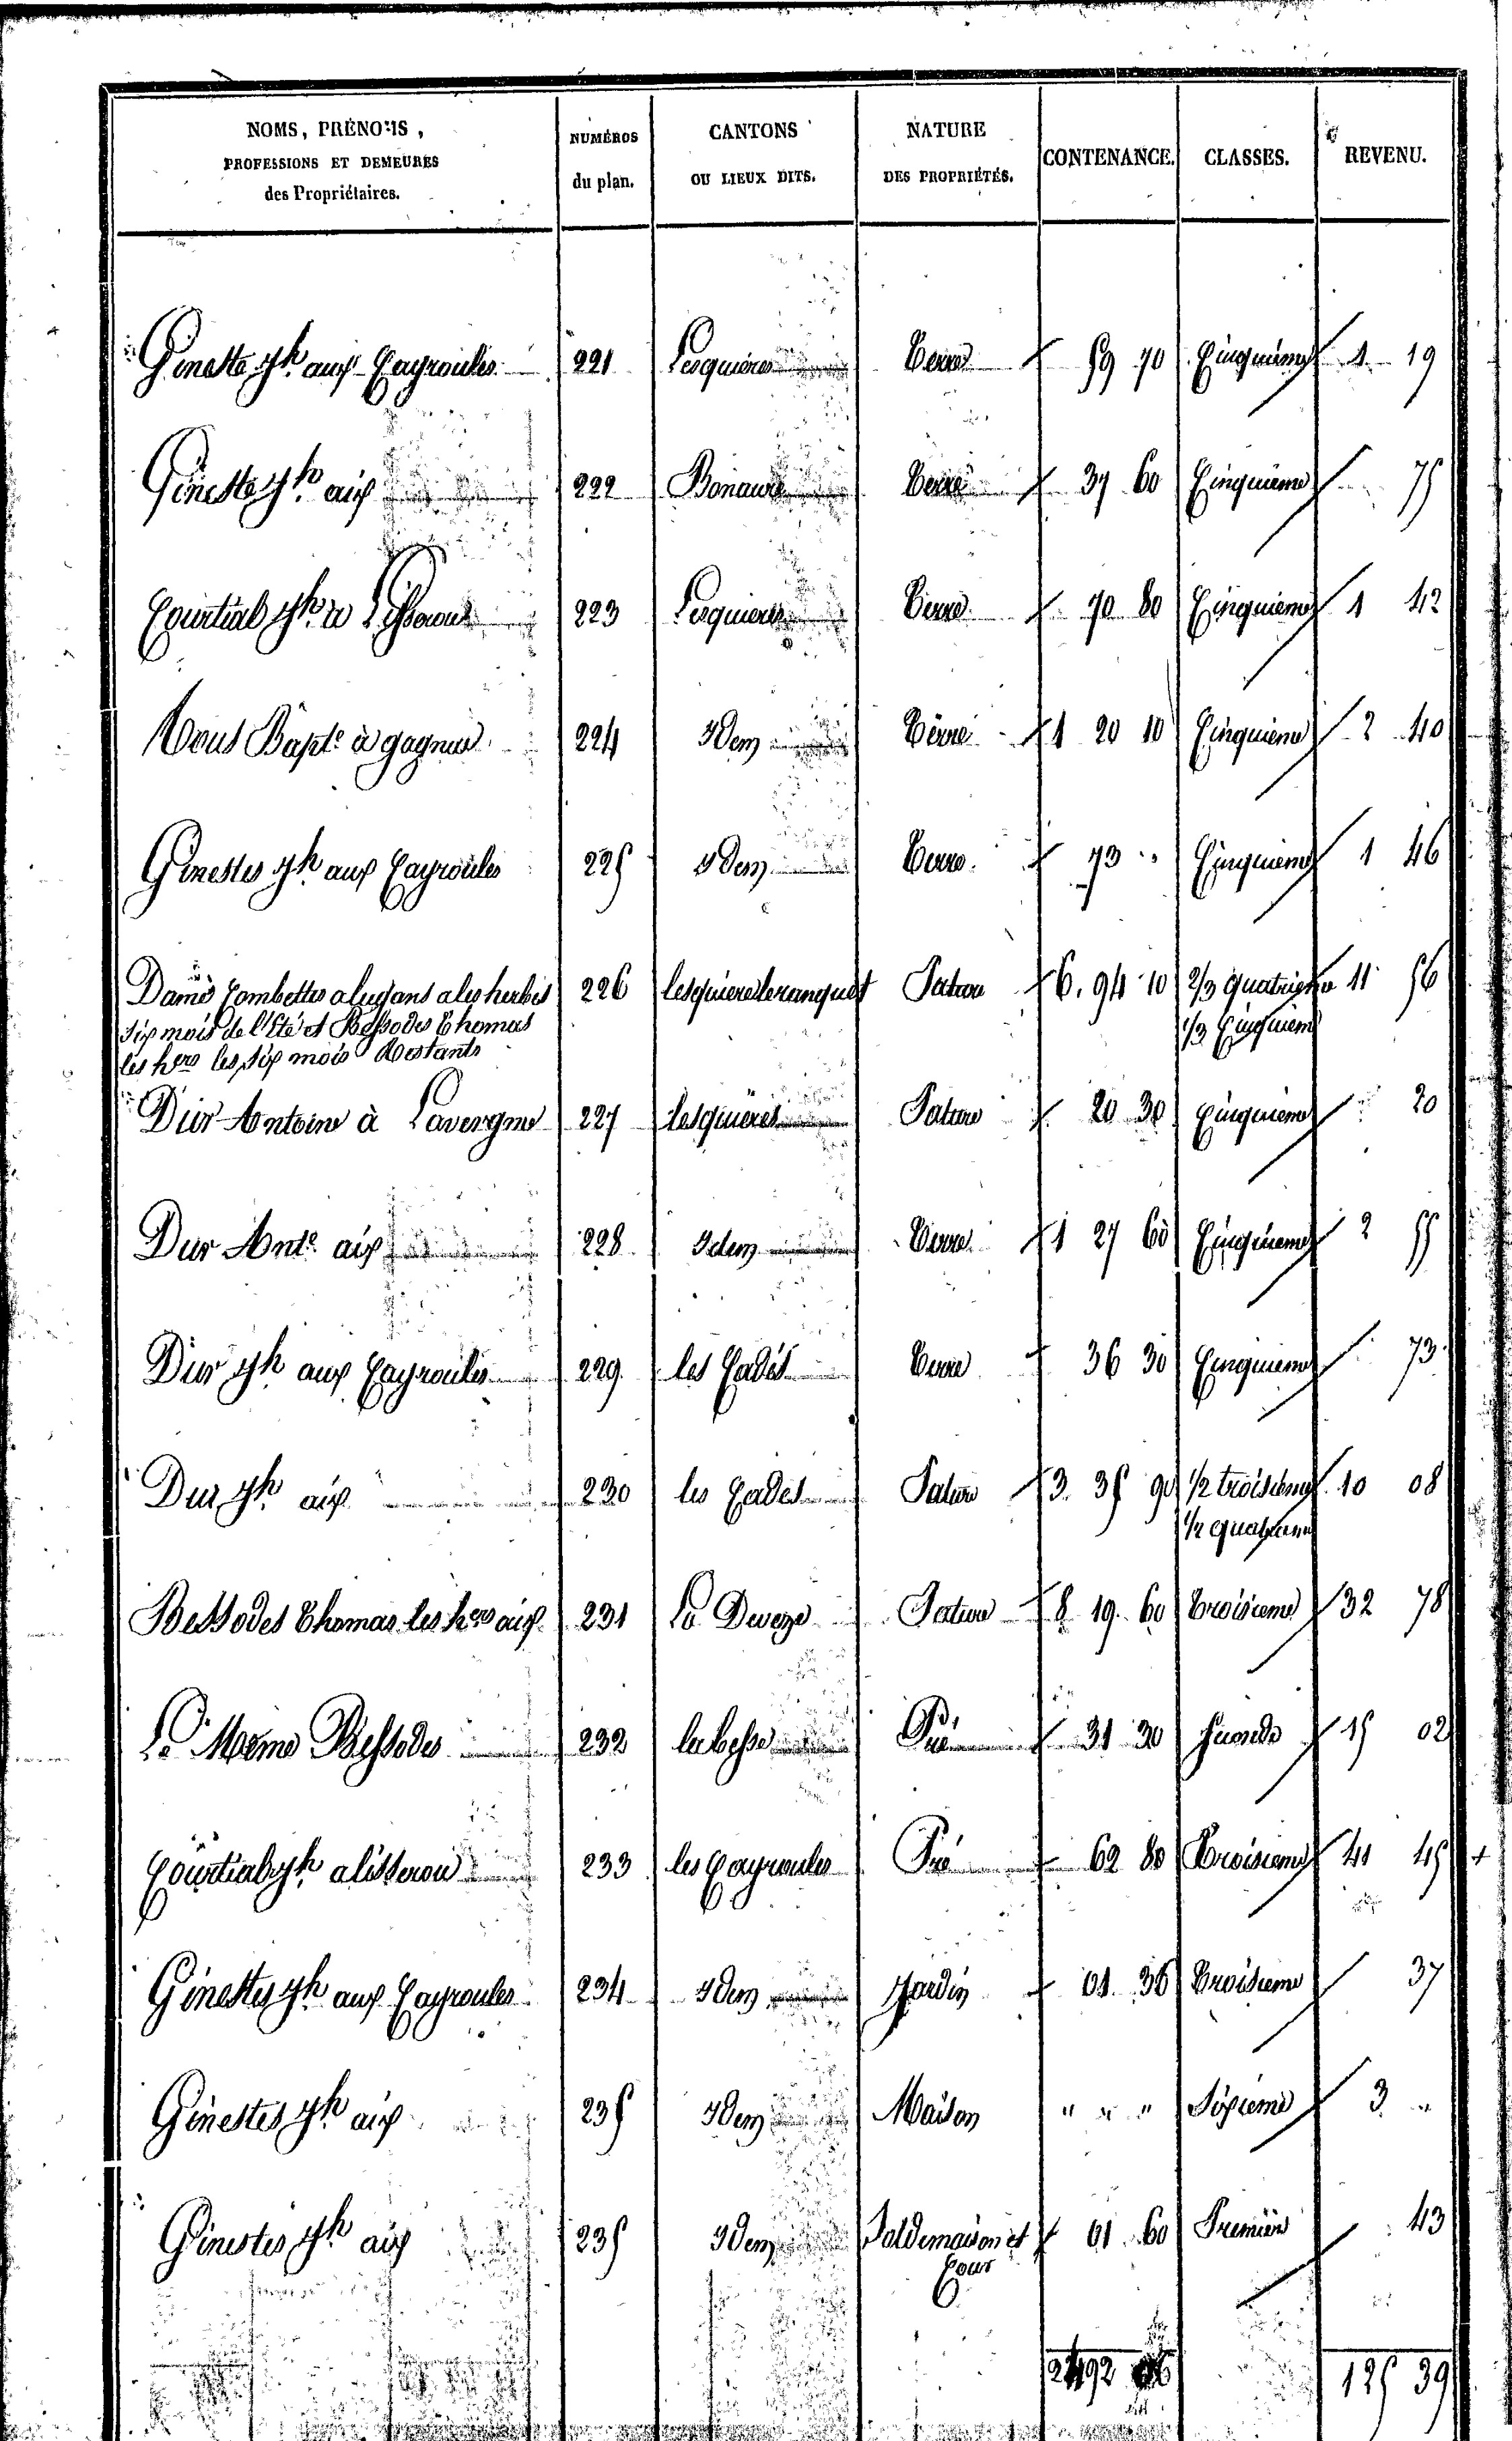 NOMS, PRÉNOMS, PROFESSIONS ET DEMEURES des Propriétaires. NUMÉROS du plan. CANTONS OU LIEUX DITS. NATURE DES PROPRIÉTÉS. CONTENANCE. CLASSES. REVENU.
Ginestes Jh. aux Cayroules 221 Lesquieres Terre 59 70 Cinquieme 1 19
Ginestes Jh. aux 222 Bonaure Terre 37 60 Cinquieme 75
Courtial Jh. a Lisserou 223 Lesquieres Terre 70 80 Cinquieme 1 42
Bapte. à gagnac 224 Idem Terre 1 20 10 Cinquieme 2 40
Ginestes Jh aux Cayroules 225 Idem Terre 73 " Cinquieme 1 46
Dames Combettes a lugans a les herbes 226 lesquieres Pature 6. 94 10 2/3 quatrieme 11 56
Six mois de l'Eté et Bessodes Thomas 1/3 Cinquieme
les hers les six mois Restants
Dur Antoine à Lavergne 227 lesquieres Pature 20 30 Cinquieme 20
Dur Ante. aux 228 Idem Terre 1 27 60 Cinquieme 2 55
Dur Jh aux Cayroules 229 les Cades Terre 36 30 Cinquieme 73
Dur Jh aux 230 les Cades Pature 3. 35 90 1/2 troisieme 10 08
1/2 quatrieme
Bessodes Thomas les hers aux 231 La Deveze Pature 8 19 60 Troisieme 32 78
Le Meme Bessodes 232 labesse Pré 31 30 Seconde 15 02
Courtial Jh a lisserou 233 les Cayroules Pré 62 80 Troisieme 41 45 +
Ginestes Jh aux Cayroules 234 Idem Jardin 01 36 Troisieme 37
Ginestes Jh aux 235 Idem Maison " " " Sixieme 3 "
Ginestes Jh aux 235 Idem Sol de maison et 01 60 Premiere 43
Cour
2492 06 125 39